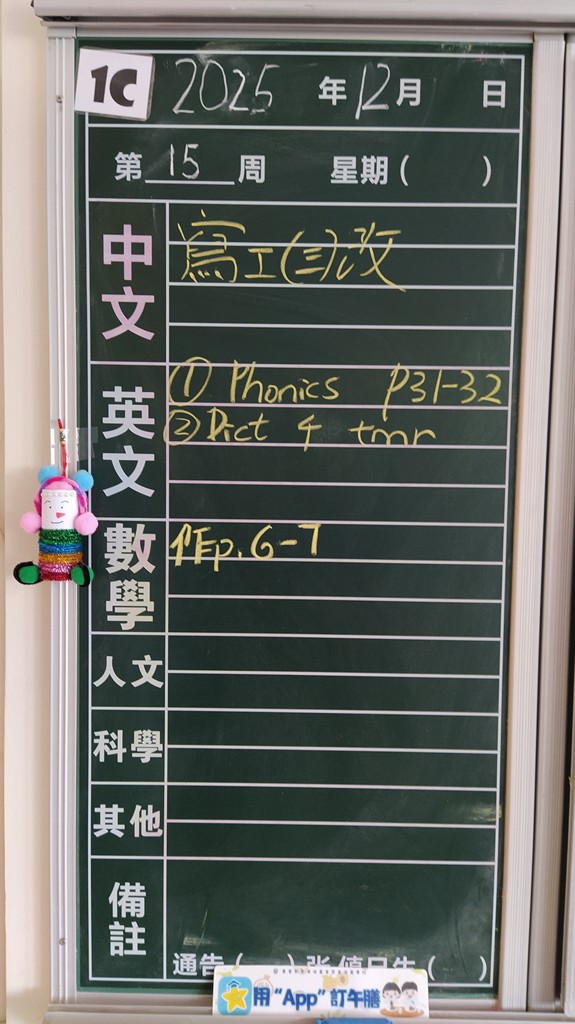 1C 2025 年 12 月 日
第 15 周 星期 ( )
中文 寫工(三)改
英文 ① Phonics p31-32
② Dict 4 tmr
數學 作p.6-7
人文
科學
其他
備註
通告 ( ) 張
用 "App" 訂午膳